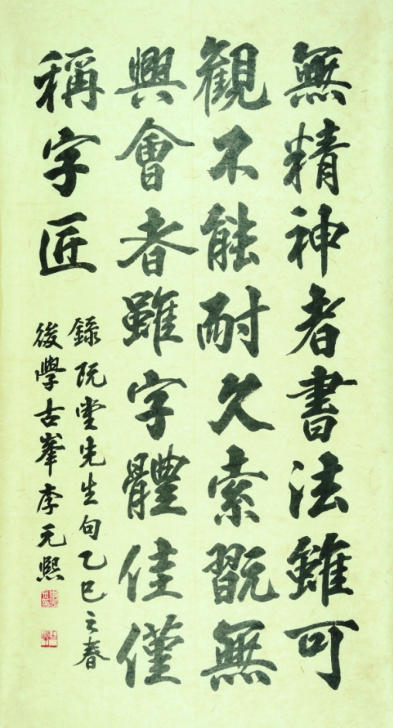 無精神者書法雖可
觀不能耐久索翫無
興會者雖字體佳僅
稱字匠
錄阮堂先生句乙巳之春
後學古峯李元熙